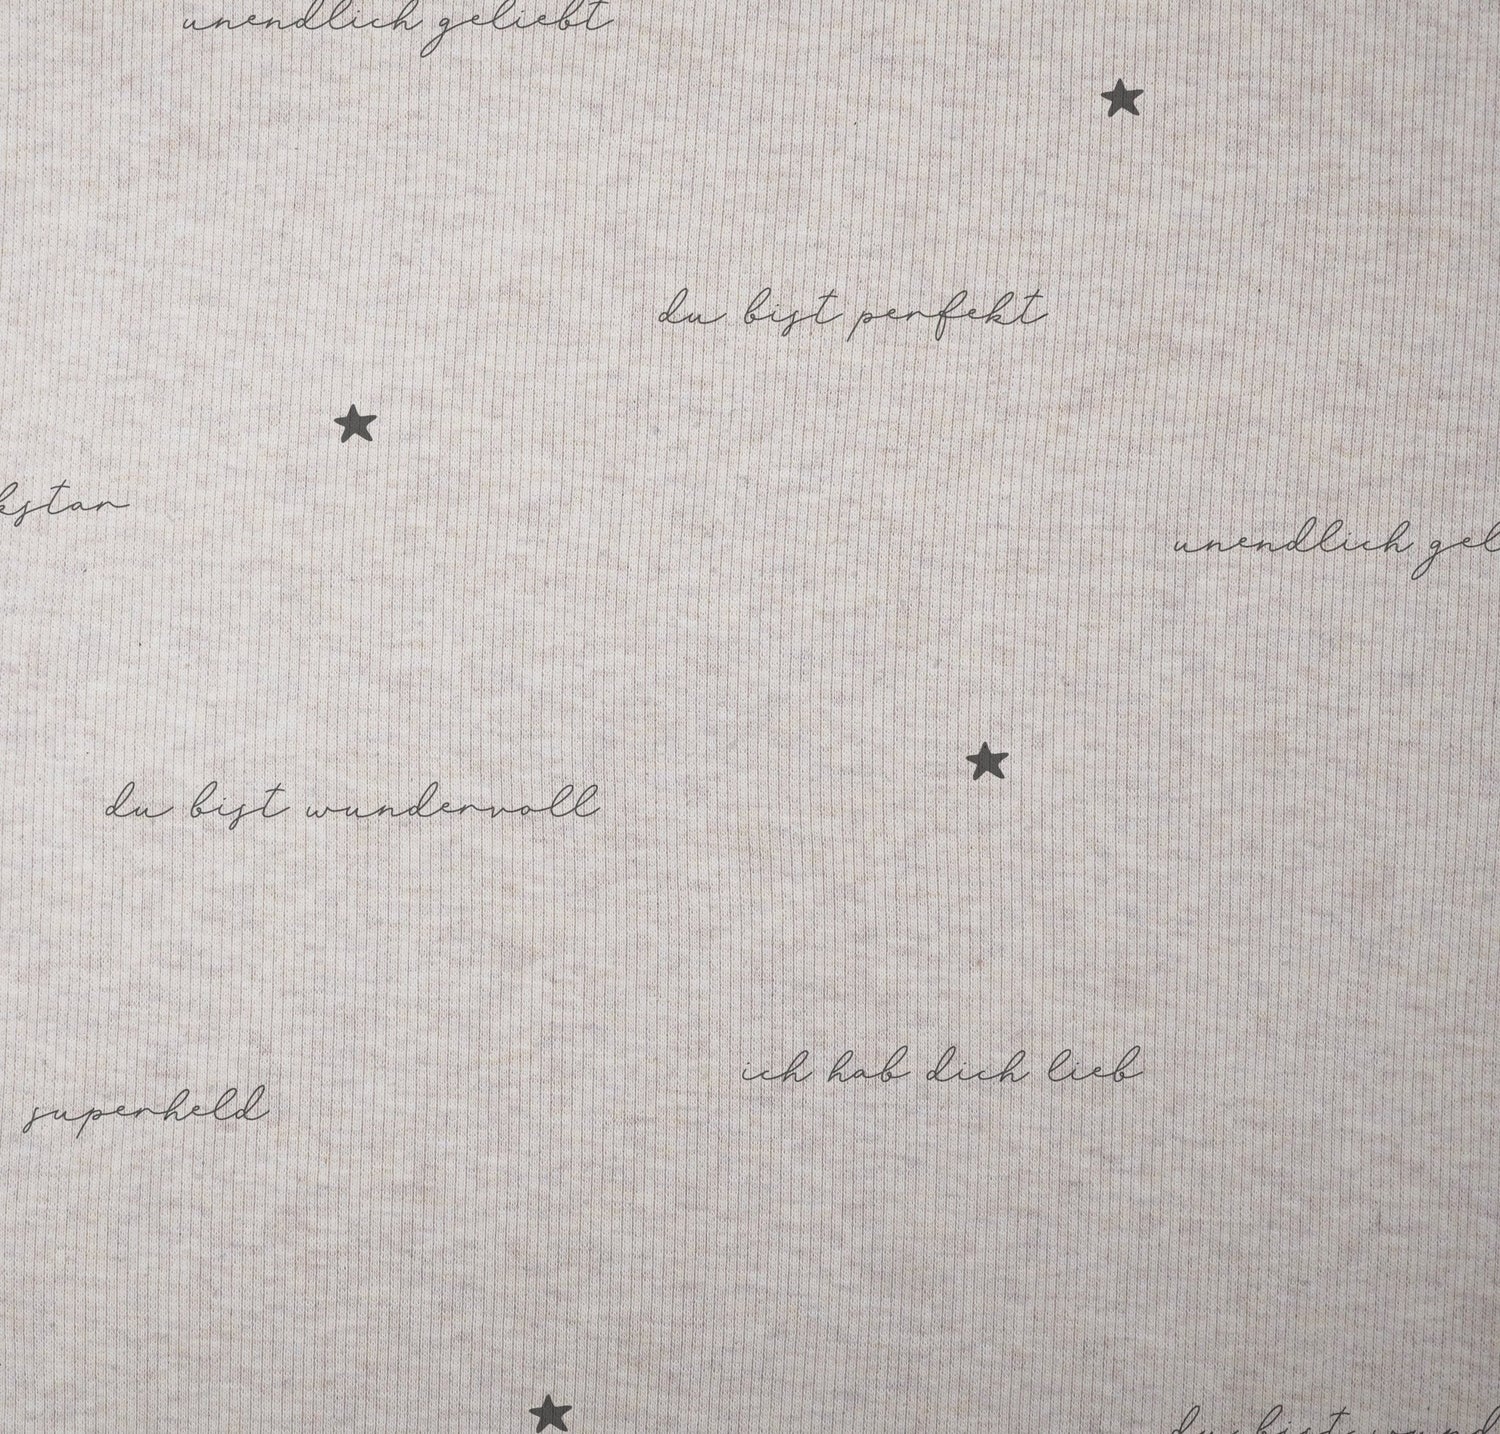 unendlich geliebt
du bist perfekt
kstar
unendlich gel
du bist wundervoll
ich hab dich lieb
superheld
du bist wund